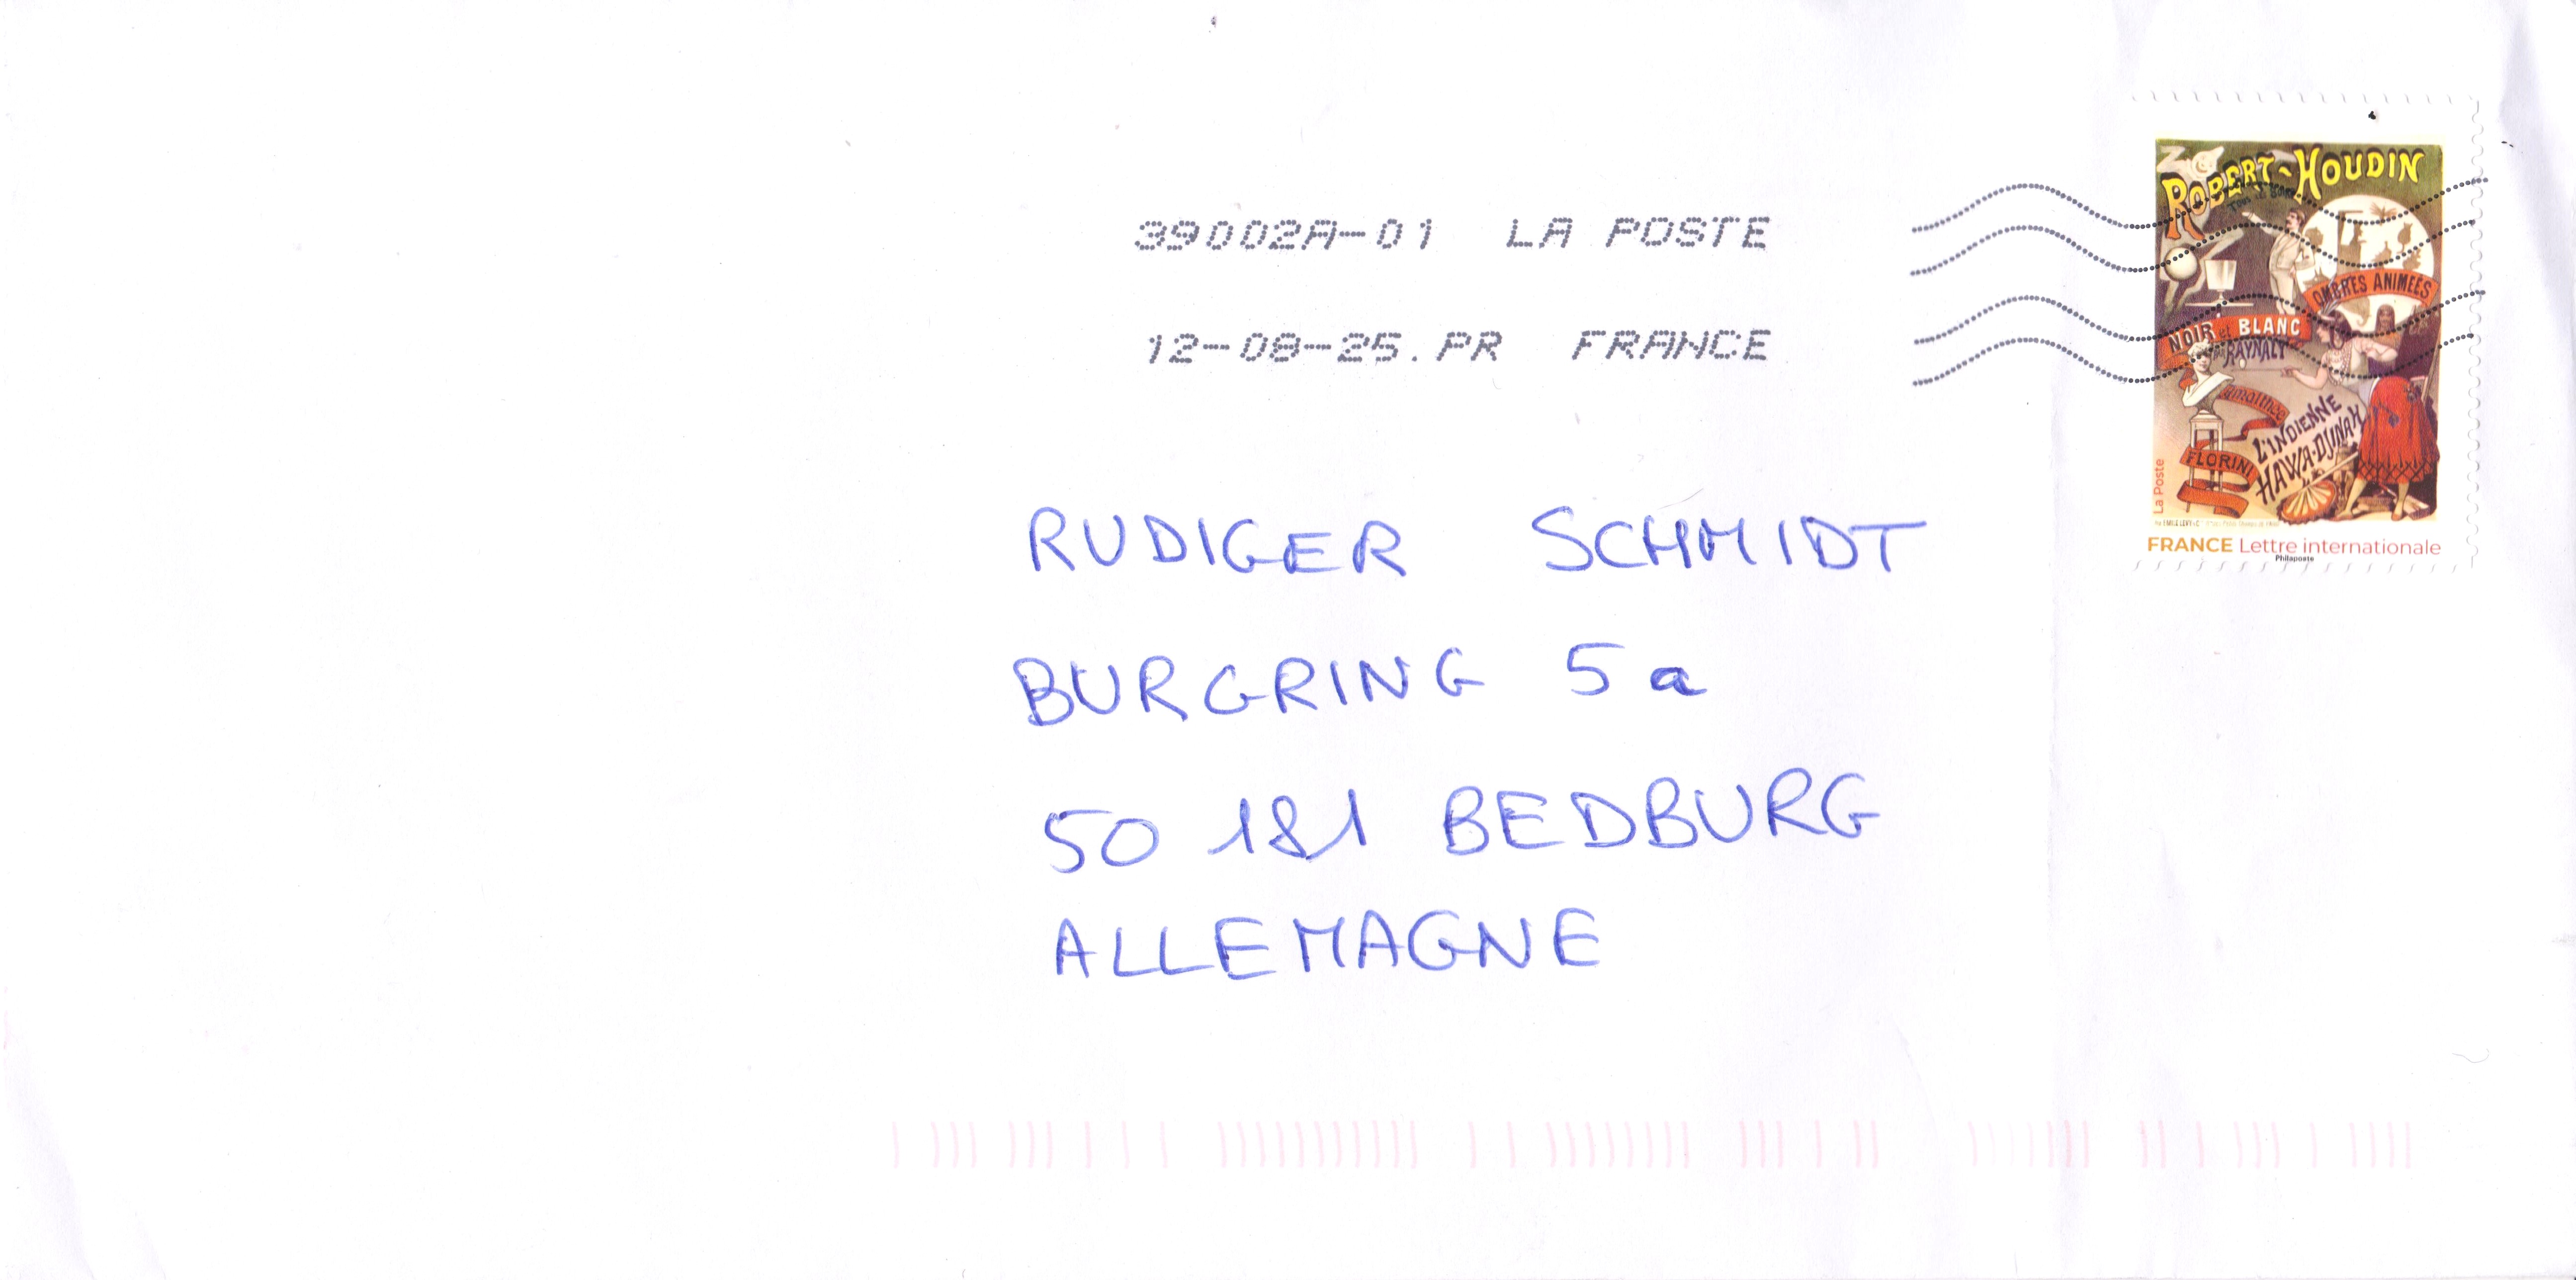 39002A-01 LA POSTE
12-08-25.PR FRANCE
ROBERT-HOUDIN
OMBRES ANIMÉES
NOIR et BLANC
PAR RAYNALY
FLORINI
L'INDIENNE
HAWA-DJINAH
La Poste
FRANCE Lettre internationale
Philaposte
RUDIGER SCHMIDT
BURGRING 5a
50 181 BEDBURG
ALLEMAGNE